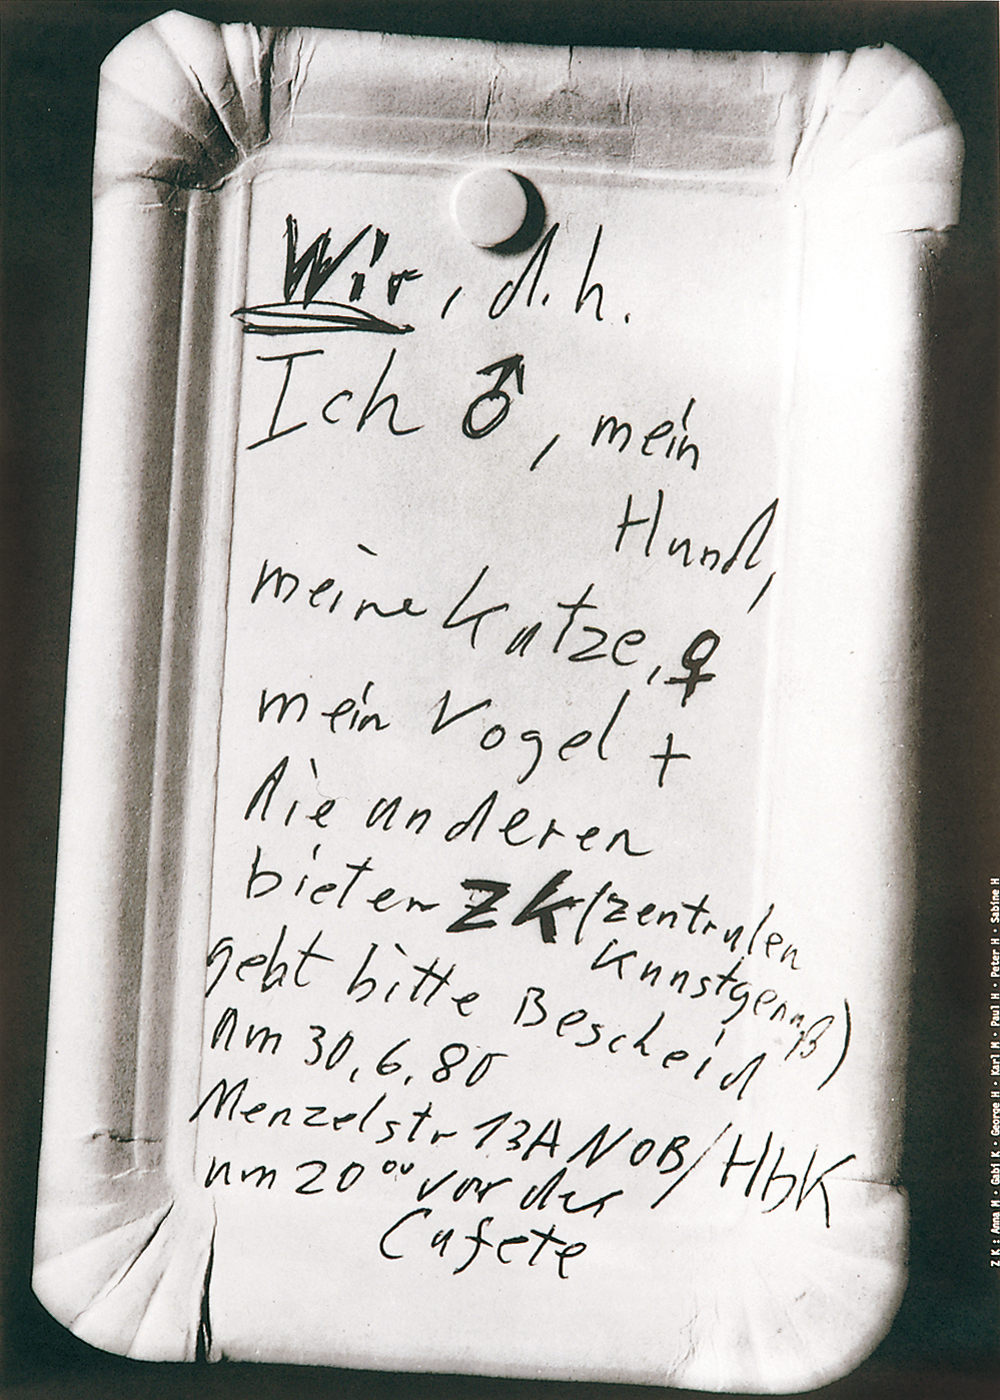 Wir, d.h.
Ich ♂, mein
Hund,
meine Katze, ♀
mein Vogel +
die anderen
bieten ZK (zentralen
Kunstgenuß)
gebt bitte Bescheid
am 30.6.80
Menzelstr 13A NOB/HbK
um 20⁰⁰ vor der
Cafete
ZK: Anna M · Gabi K · George H · Karl M · Paul H · Peter H · Sabine H